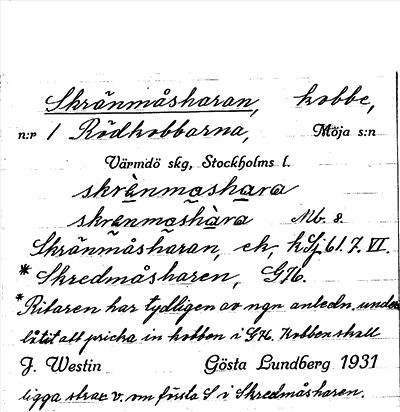 Skränmåsharan, kobbe,
n:r 1 Rödkobbarna, Möja s:n
Värmdö skg, Stockholms l.
skrànmashara
skranmashàra Mb. 8.
Skränmåsharan, ek, 61. 7. VI.
* Skredmåsharen, G76.
* Ritaren har tydligen av ngn anledn. under-
låtit att pricka in kobben i G76. Kobben skall
J. Westin Gösta Lundberg 1931
ligga strax v. om första S i Skredmåsharen.